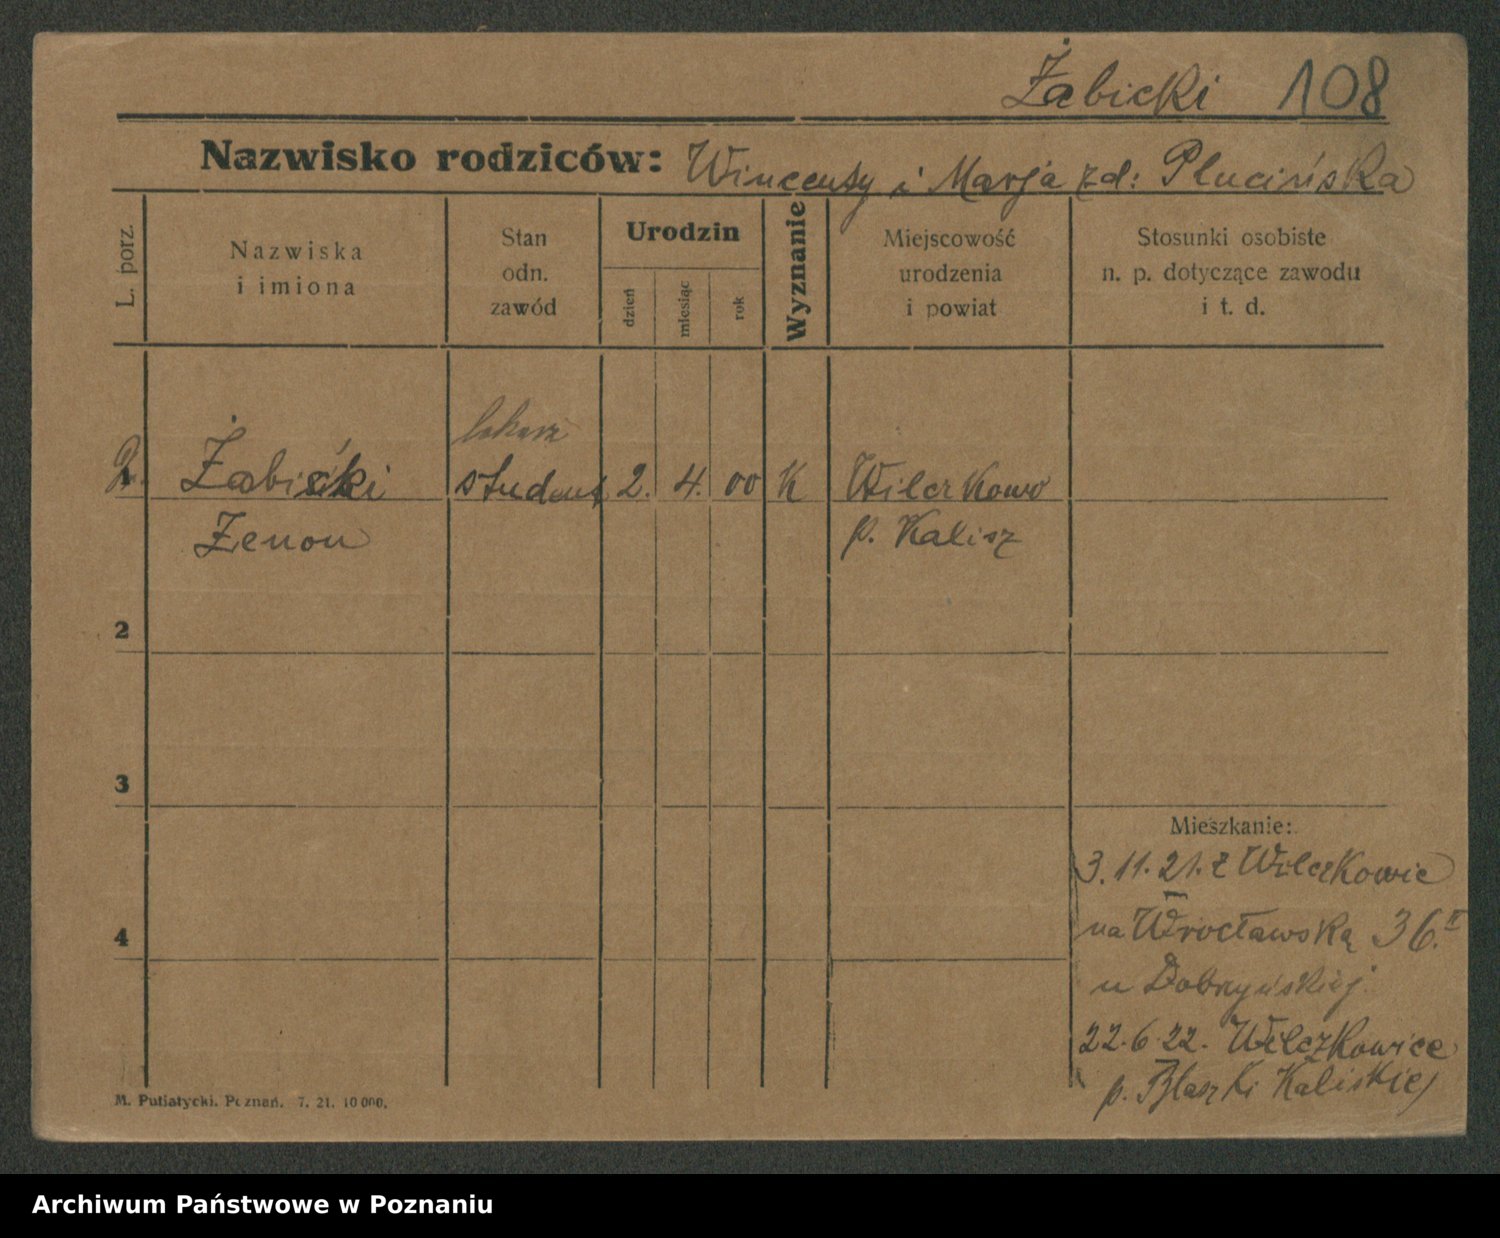 Żabicki 108
Nazwisko rodziców: Wincenty i Marja zd: Plucińska
L. porz.
Nazwiska i imiona
Stan odn. zawód
Urodzin
dzień
miesiąc
rok
Wyznanie
Miejscowość urodzenia i powiat
Stosunki osobiste n. p. dotyczące zawodu i t. d.
lekarz
1 Żabicki student 2. 4. 00 K Wilczkowo
Zenon p. Kalisz
2
3
Mieszkanie:
3. 11. 21. z Wilczkowic
4
na Wrocławską 36. II
u Dobryńskiej
22. 6. 22. Wilczkowice
p. Błaszki Kaliskiej
M. Putiatycki. Poznań. 7. 21. 10 000.
Archiwum Państwowe w Poznaniu